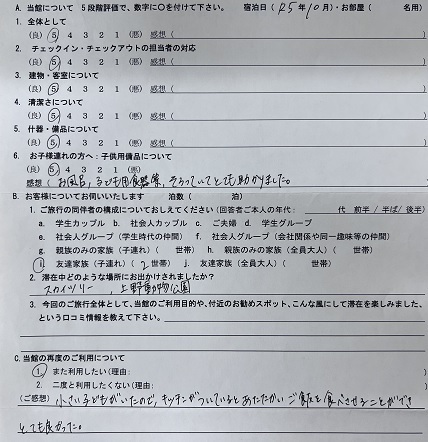 A. 当館について 5段階評価で、数字に○を付けて下さい。 宿泊日(R5年10月)・お部屋( 名用)
1. 全体として
(良) 5 4 3 2 1 (悪) 感想( )
2. チェックイン・チェックアウトの担当者の対応
(良) 5 4 3 2 1 (悪) 感想( )
3. 建物・客室について
(良) 5 4 3 2 1 (悪) 感想( )
4. 清潔さについて
(良) 5 4 3 2 1 (悪) 感想( )
5. 什器・備品について
(良) 5 4 3 2 1 (悪) 感想( )
6. お子様連れの方へ:子供用備品について
(良) 5 4 3 2 1 (悪)
感想( お風呂,子ども用食器等,そろっていてとても助かりました。 )
B. お客様についてお伺いいたします 泊数( 泊)
1. ご旅行の同伴者の構成についておしえてください(回答者ご本人の年代: 代 前半/半ば/後半)
a. 学生カップル b. 社会人カップル c. ご夫婦 d. 学生グループ
e. 社会人グループ(学生時代の仲間) f. 社会人グループ(会社関係や同一趣味等の仲間)
g. 親族のみの家族(子連れ)( 世帯) h. 親族のみの家族(全員大人)( 世帯)
i. 友達家族(子連れ)( 2 世帯) j. 友達家族(全員大人)( 世帯)
2. 滞在中どのような場所にお出かけされましたか?
スカイツリー , 上野動物公園
3. 今回のご旅行全体として、当館のご利用目的や、付近のお勧めスポット、こんな風にして滞在を楽しみました、
という口コミ情報を教えて下さい。
C. 当館の再度のご利用について
1. また利用したい(理由:
2. 二度と利用したくない(理由:
(ご感想) 小さい子どもがいたので,キッチンがついているとあたたかいご飯を食べさせることができ
とても良かった。